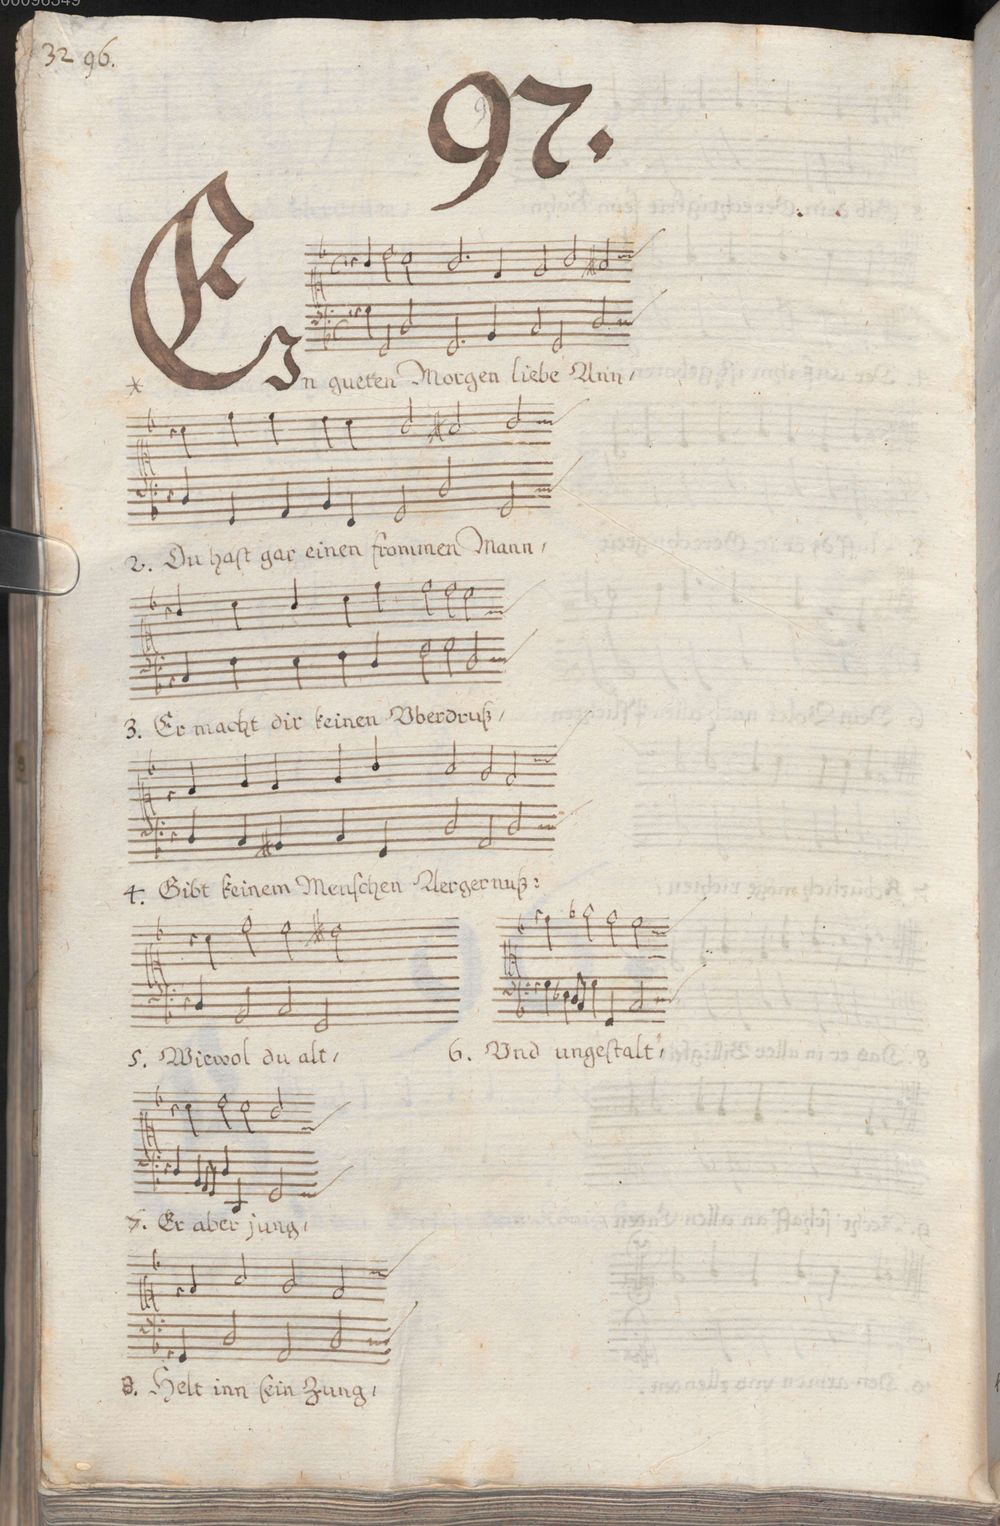 00096349
32 96.
97.
Ein gueten Morgen liebe Ann,
2. Du hast gar einen frommen Mann,
3. Er macht dir keinen Vberdruß,
4. Gibt keinem Menschen Aergernuß:
5. Wiewol du alt,
6. Vnd ungestalt,
7. Er aber jung,
8. Helt inn sein Zung,